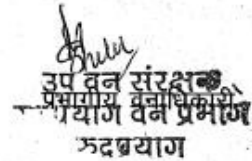 उप वन संरक्षक
प्रभागीय वनाधिकारी
वन प्रभाग
रुद्रप्रयाग